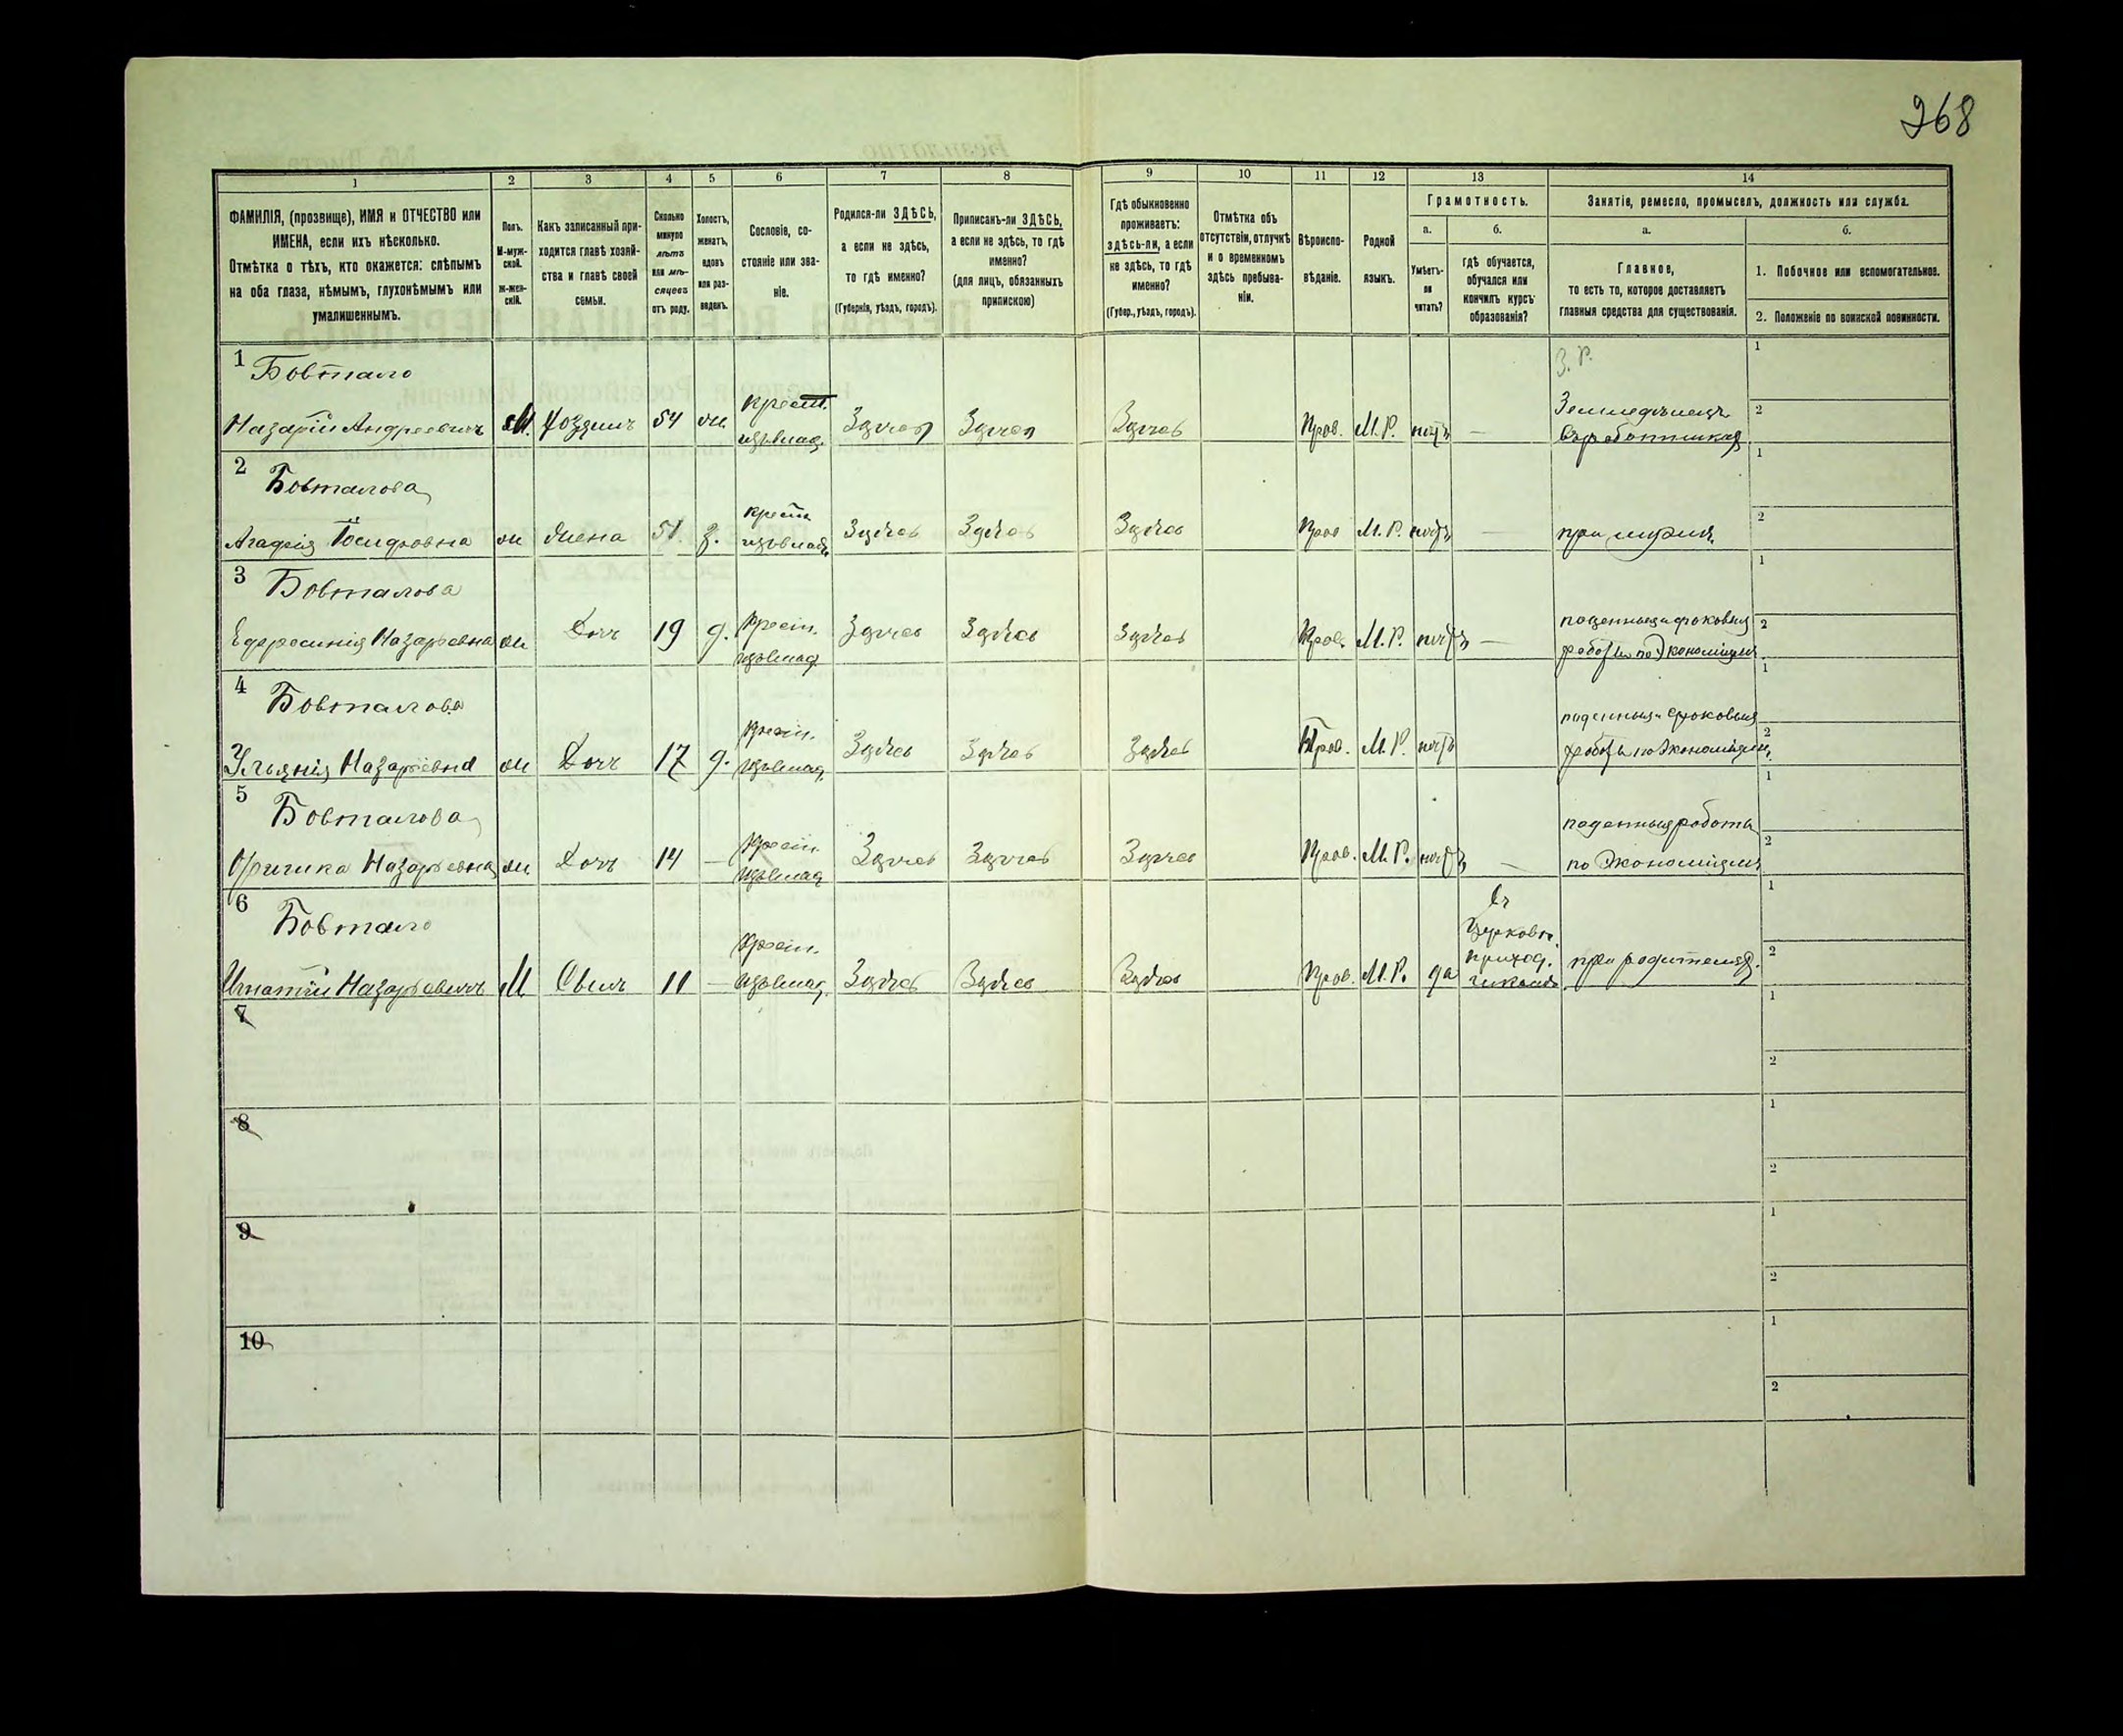 268
1 2 3 4 5 6 7 8 9 10 11 12 13 14
ФАМИЛІЯ, (прозвище), ИМЯ и ОТЧЕСТВО или
ИМЕНА, если ихъ нѣсколько.
Отмѣтка о тѣхъ, кто окажется: слѣпымъ
на оба глаза, нѣмымъ, глухонѣмымъ или
умалишеннымъ.
Полъ.
М-муж-
ской.
Ж-жен-
скій.
Какъ записанный при-
ходится главѣ хозяй-
ства и главѣ своей
семьи.
Сколько
минуло
лѣтъ
или мѣ-
сяцевъ
отъ роду.
Холостъ,
женатъ,
вдовъ
или раз-
веденъ.
Сословіе, со-
стояніе или зва-
ніе.
Родился-ли ЗДѢСЬ,
а если не здѣсь,
то гдѣ именно?
(Губернія, уѣздъ, городъ).
Приписанъ-ли ЗДѢСЬ,
а если не здѣсь, то гдѣ
именно?
(для лицъ, обязанныхъ
припискою)
Гдѣ обыкновенно
проживаетъ:
здѣсь-ли, а если
не здѣсь, то гдѣ
именно?
(Губер., уѣздъ, городъ).
Отмѣтка объ
отсутствіи, отлучкѣ
и о временномъ
здѣсь пребыва-
ніи.
Вѣроиспо-
вѣданіе.
Родной
языкъ.
Грамотность.
а.
Умѣетъ-
ли
читать?
б.
гдѣ обучается,
обучался или
кончилъ курсъ
образованія?
Занятіе, ремесло, промыселъ, должность или служба.
а.
Главное,
то есть то, которое доставляетъ
главныя средства для существованія.
б.
1. Побочное или вспомогательное.
2. Положеніе по воинской повинности.
1 Бовтало З. Р. 1
Назарій Андреевичъ М. Хозяинъ 54 ж. Крест. изъ влад. Здѣсь Здѣсь Здѣсь Прав. М. Р. нѣтъ — Земледѣлецъ 2
2 Бовталова 1
Агафія Іосифовна ж жена 51. з. крест. изъ влад. Здѣсь Здѣсь Здѣсь Прав М. Р. нѣтъ — при мужѣ 2
3 Бовталова 1
Назарьевна ж Дочь 19 д. Крест. изъ влад. Здѣсь Здѣсь Здѣсь Прав. М. Р. нѣтъ — 2
4 Бовталова 1
Ульянія Назарьевна ж Дочь 17 д. Крест. изъ влад. Здѣсь Здѣсь Здѣсь Прав. М. Р. нѣтъ 2
5 Бовталова поденныя работы 1
Назарьевна ж. Дочь 14 — Крест. изъ влад. Здѣсь Здѣсь Здѣсь Прав. М. Р. нѣтъ — 2
6 Бовтало 1
Игнатій Назарьевичъ М Сынъ 11 — Крест. изъ влад. Здѣсь Здѣсь Здѣсь Прав. М. Р. да Въ Церковн. приход. школѣ при родителяхъ. 2
7 1
2
8 1
2
9 1
2
10 1
2